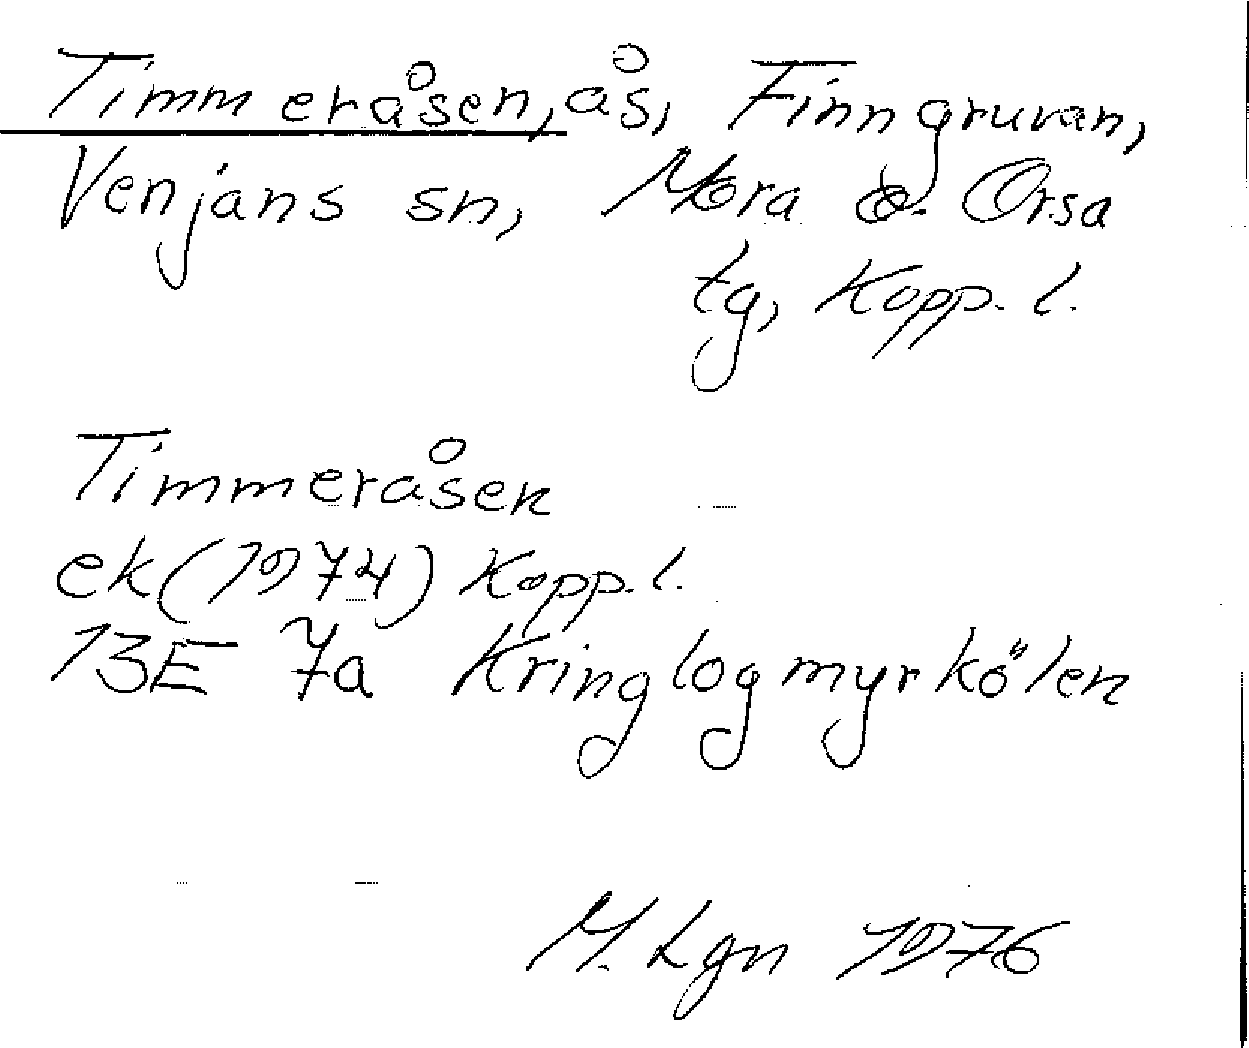 Timmeråsen, ås, Finngruvan,
Venjans sn, Mora o. Orsa
tg, Kopp. l.
Timmeråsen
ek (1974) Kopp. l.
13E 7a Kringlogmyrkölen
M. Lgn 1976